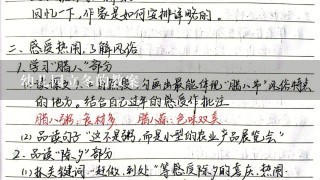 回忆一下，作家是如何安排详略的。
二、感受热闹，了解风俗
1.学习“腊八”部分
勾画出最能体现“腊八节”风俗特点
的地方。结合自己过年的感受作批注
腊八粥：食材多 腊八蒜：色味双美
(2)品读句子“这不是粥，而是小型的农业产品展览会”
2.品读“除夕”部分
(1)抓关键词“赶做，到处”等感受除夕的喜庆、热闹